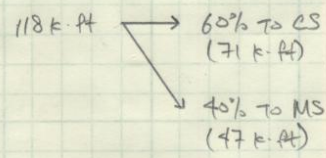 118 k·ft
60% TO CS
(71 k·ft)
40% TO MS
(47 k·ft)